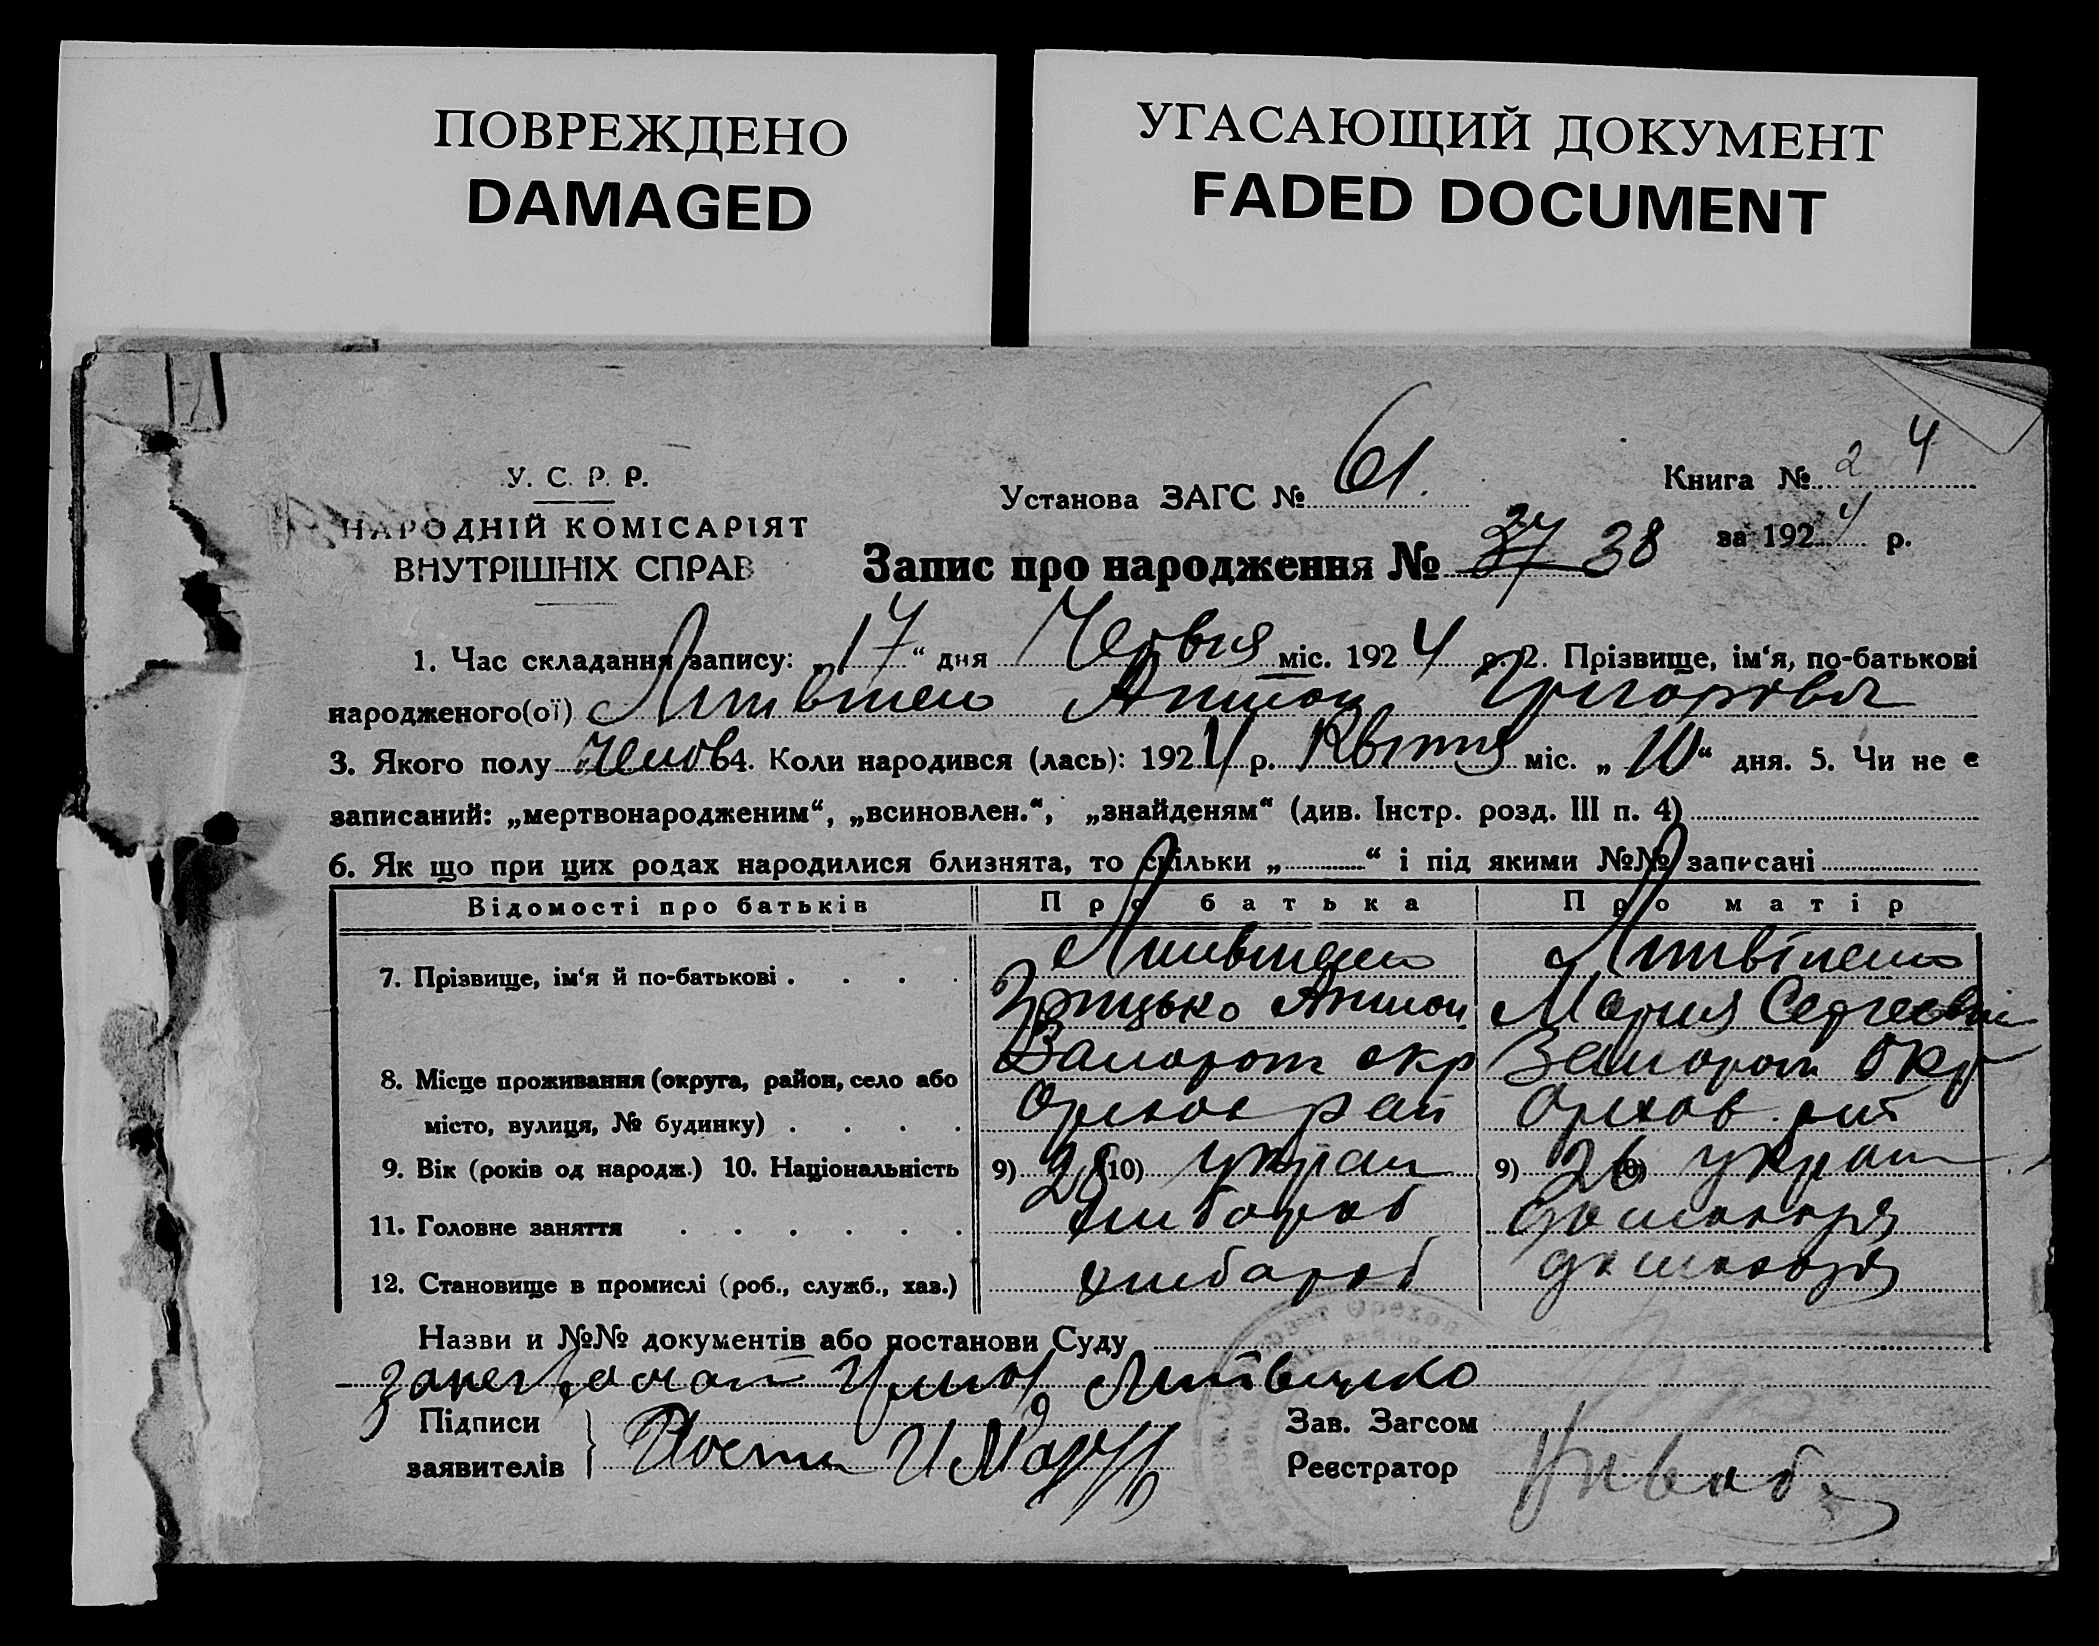 ПОВРЕЖДЕНО
DAMAGED
УГАСАЮЩИЙ ДОКУМЕНТ
FADED DOCUMENT
У. С. Р. Р.
НАРОДНІЙ КОМІСАРІЯТ
ВНУТРІШНІХ СПРАВ
Установа ЗАГС № 61.
Книга № 2 4
за 1924 р.
Запис про народження № 37 38
1. Час складання запису: „17“ дня Червня міс. 1924 р. 2. Прізвище, ім‘я, по-батькові
народженого(ої) Антон
3. Якого полу 4. Коли народився (лась): 1924 р. Квітня міс. „10“ дня. 5. Чи не є
записаний: „мертвонародженим“, „всиновлен.“, „знайденям“ (див. Інстр. розд. III п. 4)
6. Як що при цих родах народилися близнята, то скільки „ “ і під якими №№ записані
Відомості про батьків Про батька Про матір
7. Прізвище, ім‘я й по-батькові . . . .
Грицько Антон Мария Сергеевн
8. Місце проживання (округа, район, село або Запорож окр Запорож окр
місто, вулиця, № будинку) . . . . Орехов рай Орехов
9. Вік (років од народж.) 10. Національність 9) 28 10) украи 9) 26 10) украи
11. Головне заняття . . . . . . хлібороб домохазя
12. Становище в промислі (роб., служб., хаз.) хлібороб домохазя
Назви и №№ документів або постанови Суду
Підписи
заявителів
Зав. Загсом
Реєстратор